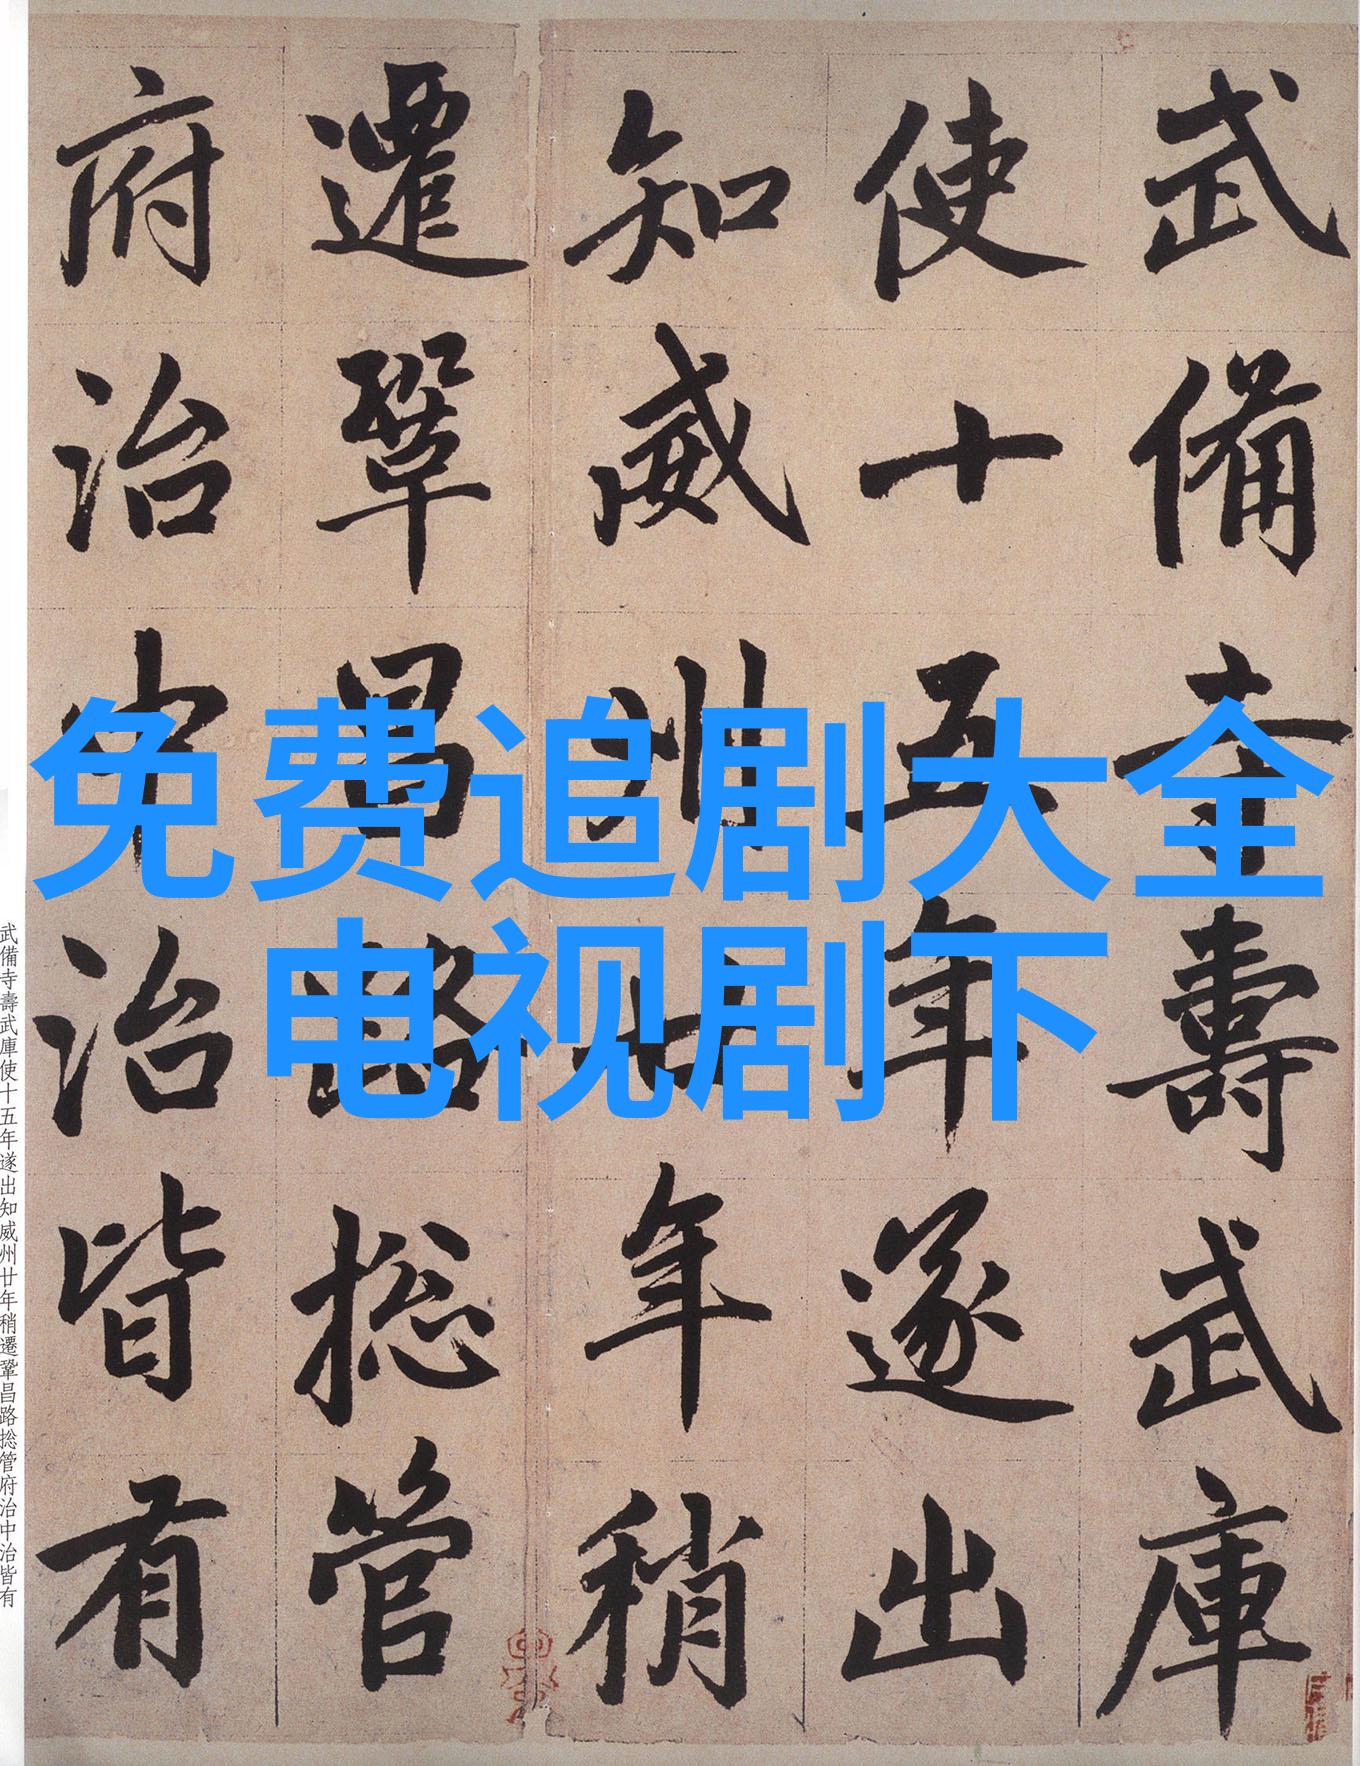 武備寺壽武庫
使十五年遂出
知威州廿年稍
遷鞏昌路捴管
府治中治皆有
免费追剧大全
电视剧下
武備寺壽武庫使十五年遂出知威州廿年稍遷鞏昌路捴管府治中治皆有